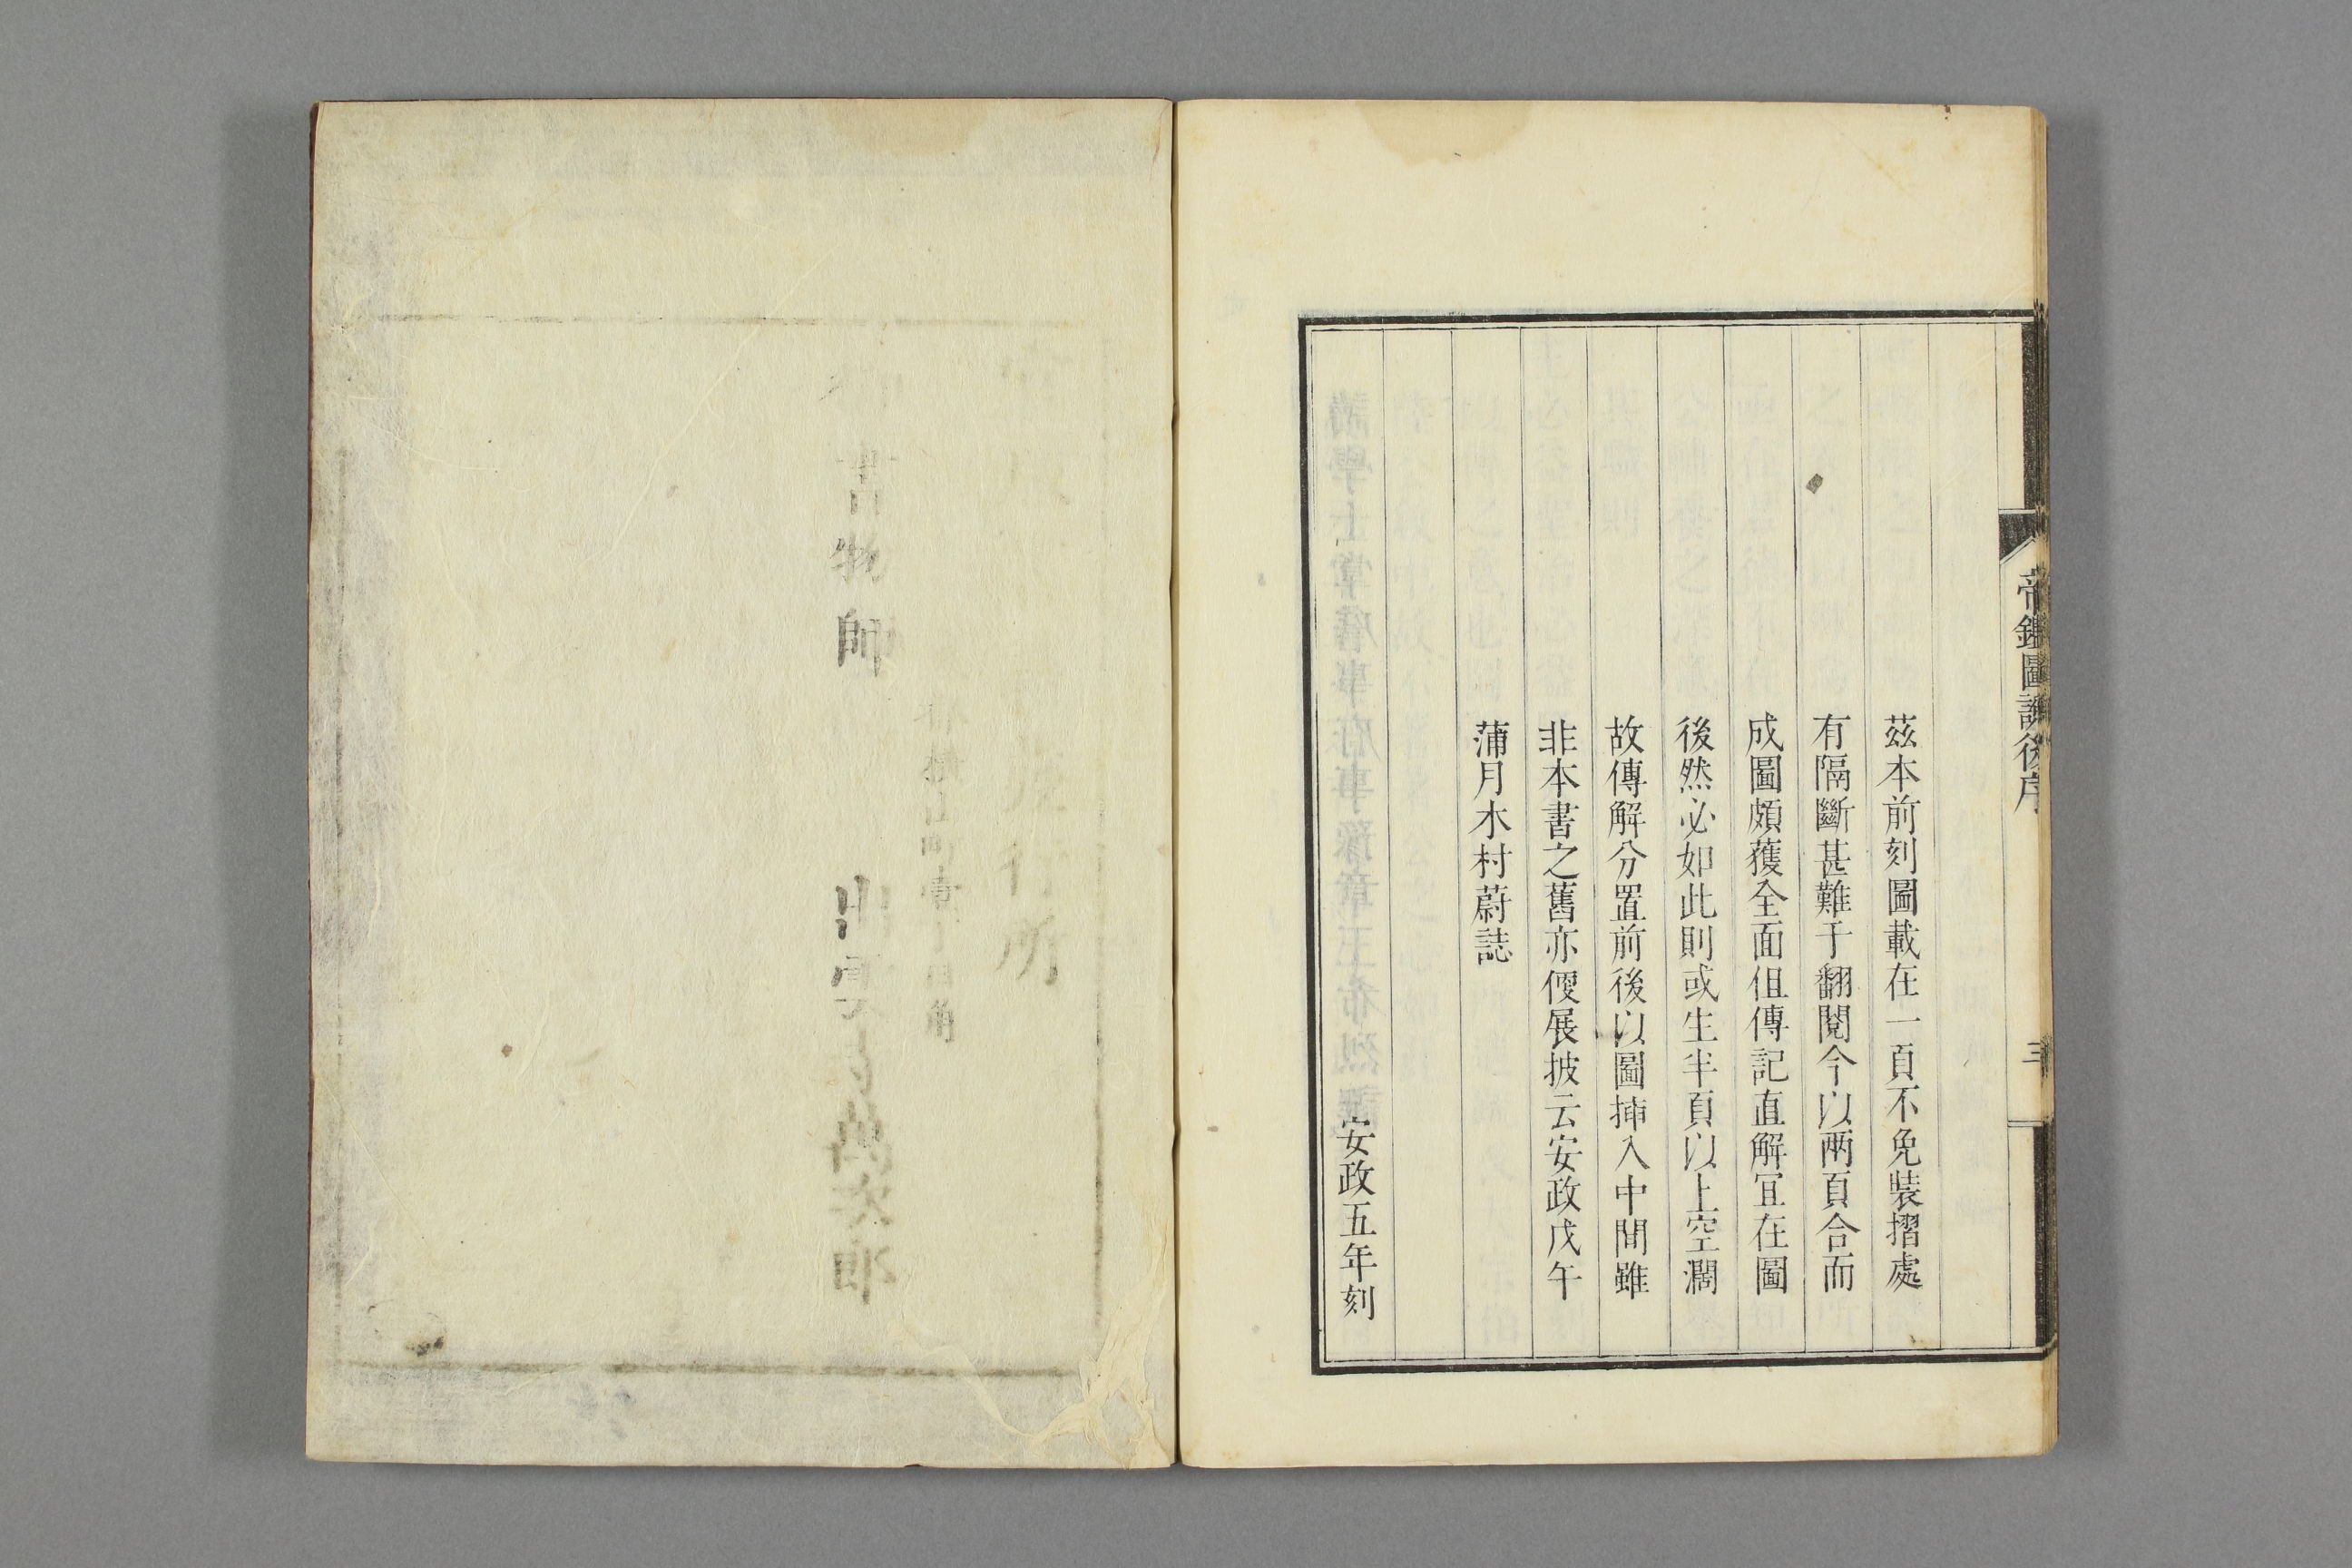 帝鑑圖說後序
三
茲本前刻圖載在一頁不免裝摺處
有隔斷甚難于翻閱今以兩頁合而
成圖頗獲全面但傳記直解冝在圖
後然必如此則或生半頁以上空濶
故傳解分置前後以圖揷入中間雖
非本書之舊亦便展披云安政戊午
蒲月木村蔚誌
安政五年刻
行所
書物師
出雲寺萬次郎